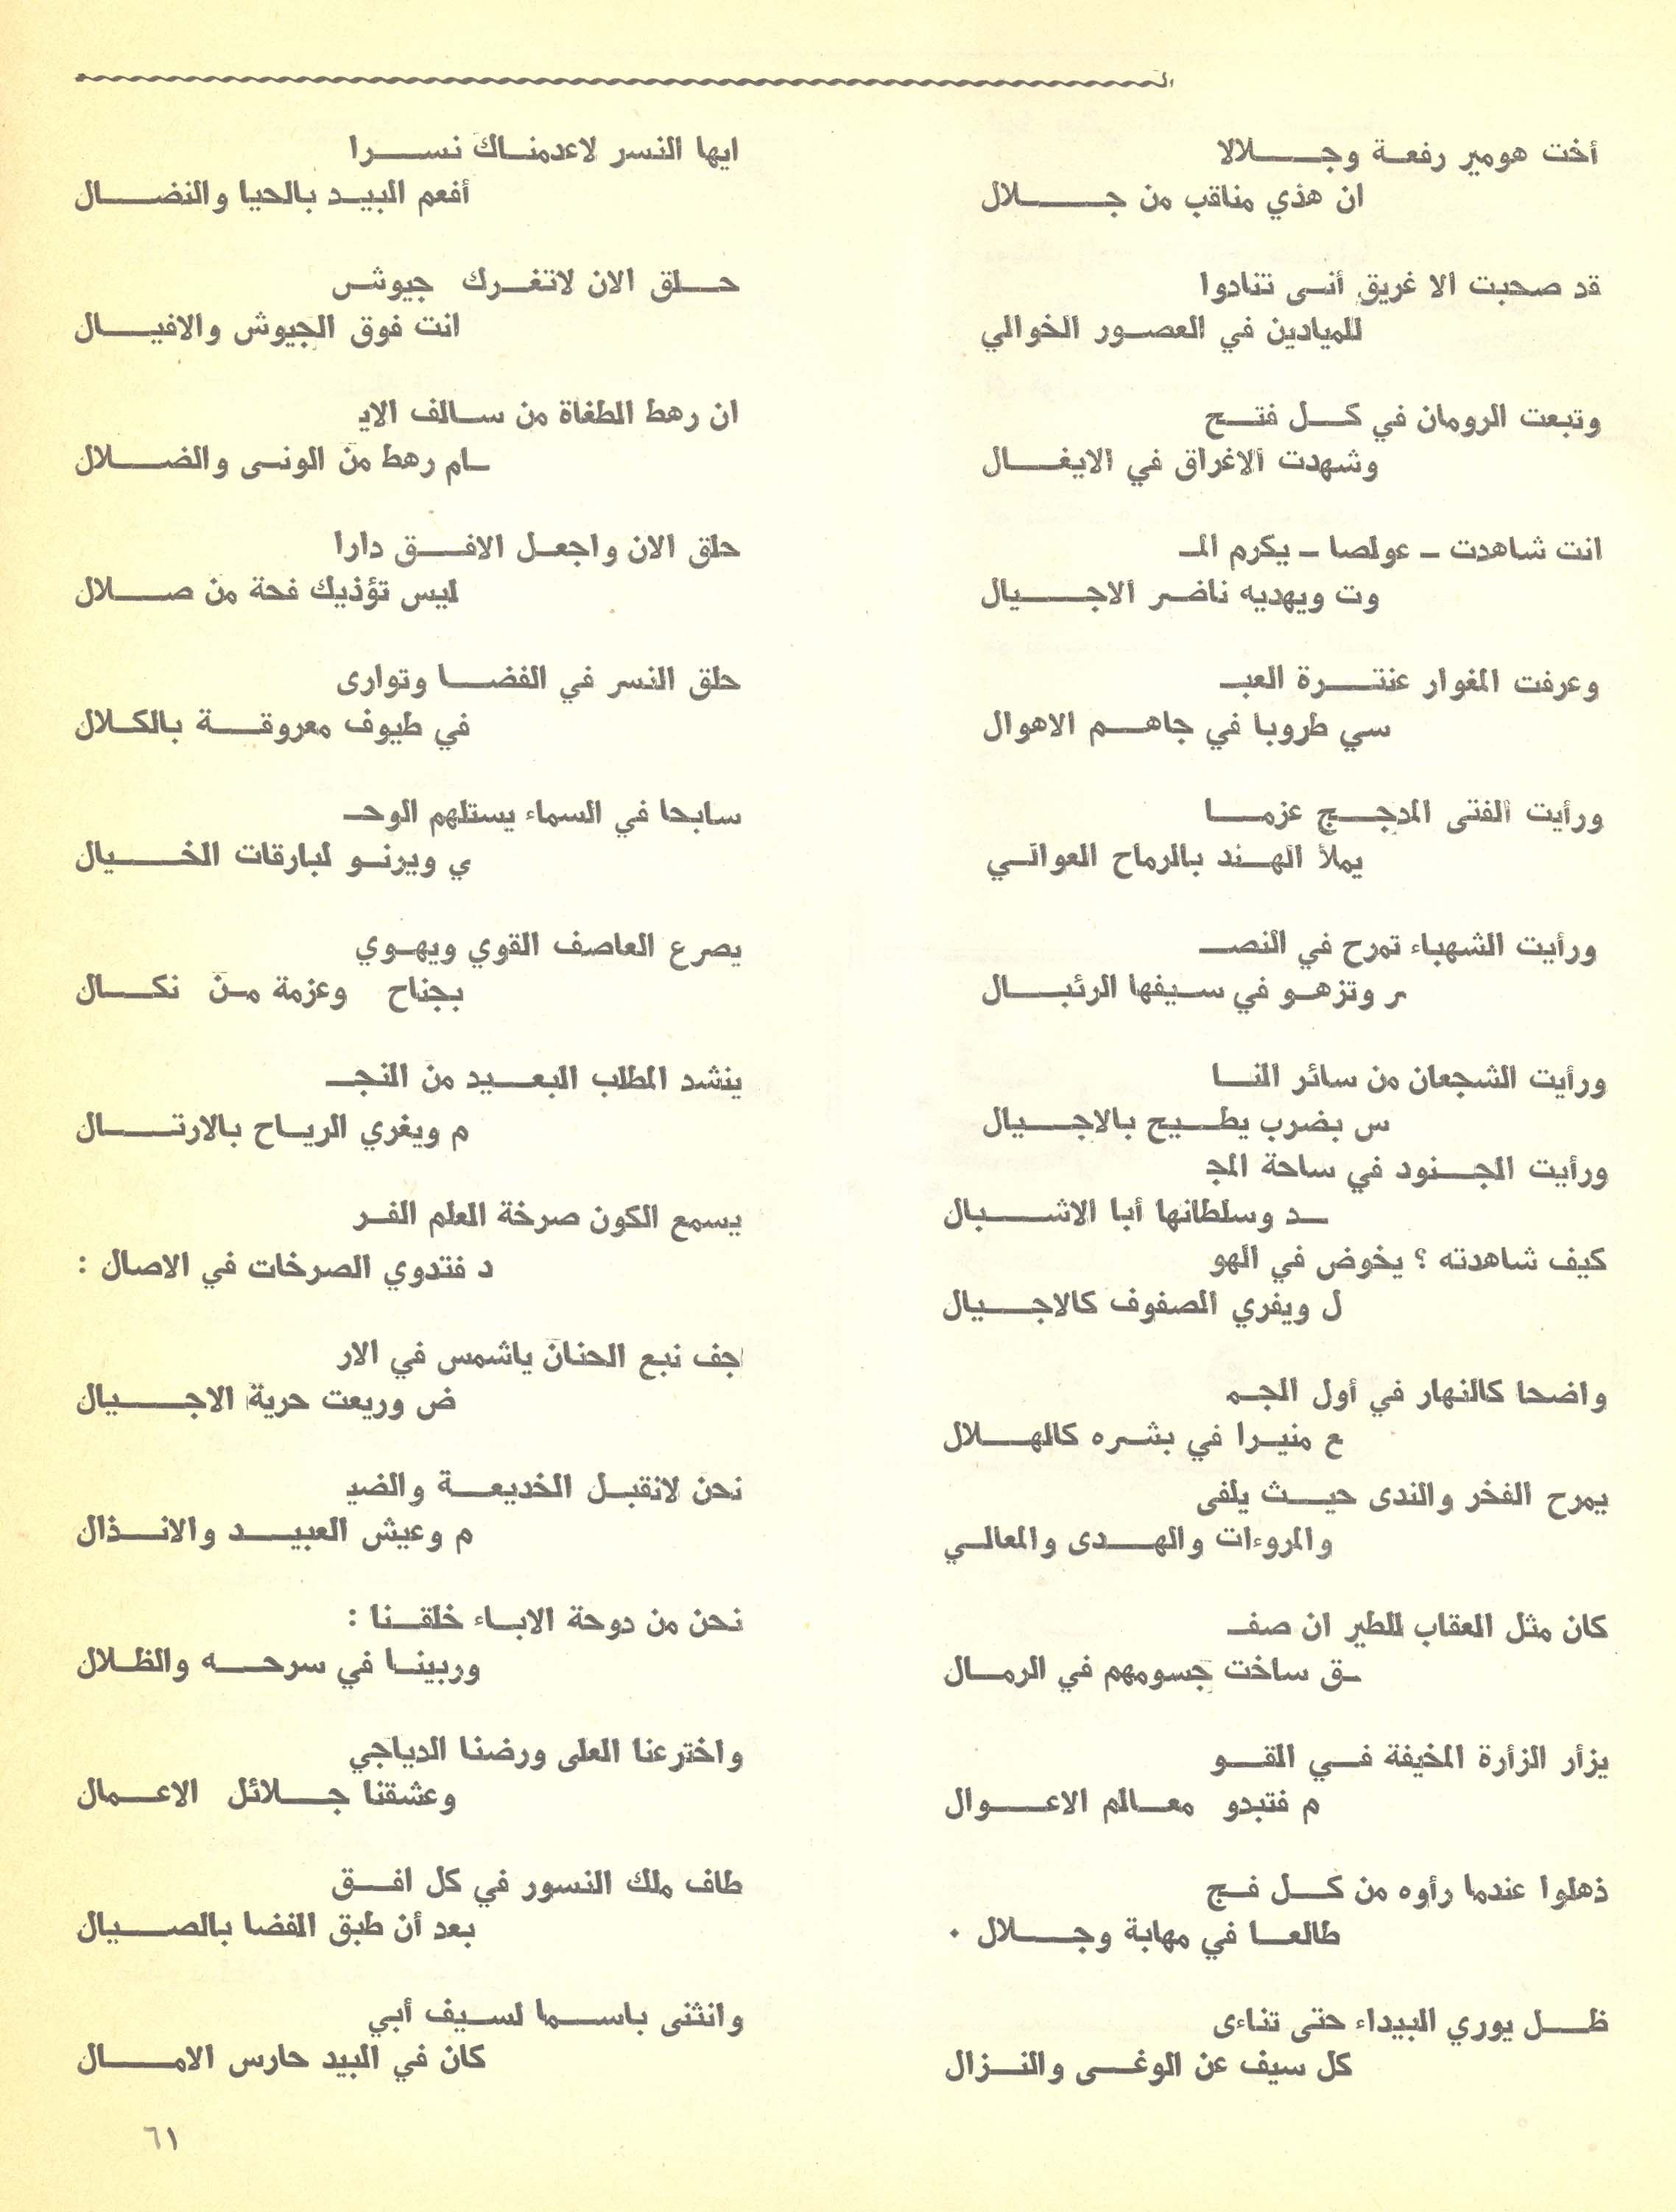 أخت هومير رفعة وجلالا
ان هذي مناقب من جلال
قد صحبت الا غريق أنى تنادوا
للميادين في العصور الخوالي
وتبعت الرومان في كل فتح
وشهدت الاغراق في الايغال
انت شاهدت ـ عولصا ـ يكرم المـ
وت ويهديه ناضر الاجيال
وعرفت المغوار عنترة العبـ
سي طروبا في جاهم الاهوال
ورأيت الفتى المدجج عزما
يملأ الهند بالرماح العوالي
ورأيت الشهباء تمرح في النصـ
ر وتزهو في سيفها الرئبال
ورأيت الشجعان من سائر النا
س بضرب يطيح بالاجيال
ورأيت الجنود في ساحة المجـ
ـد وسلطانها أبا الاشبال
كيف شاهدته ؟ يخوض في الهو
ل ويفري الصفوف كالاجيال
واضحا كالنهار في أول الجمـ
ع منيرا في بشره كالهلال
يمرح الفخر والندى حيث يلفى
والمروءات والهدى والمعالي
كان مثل العقاب للطير ان صفـ
ـق ساخت جسومهم في الرمال
يزأر الزأرة المخيفة في القو
م فتبدو معالم الاعوال
ذهلوا عندما رأوه من كل فج
طالعا في مهابة وجلال .
ظل يوري البيداء حتى تناءى
كل سيف عن الوغى والنزال
ايها النسر لاعدمناك نسرا
أفعم البيد بالحيا والنضال
حلق الان لاتغرك جيوش
انت فوق الجيوش والافيال
ان رهط الطغاة من سالف الايـ
ـام رهط من الونى والضلال
حلق الان واجعل الافق دارا
ليس تؤذيك فحة من صلال
حلق النسر في الفضا وتوارى
في طيوف معروقة بالكلال
سابحا في السماء يستلهم الوحـ
ي ويرنو لبارقات الخيال
يصرع العاصف القوي ويهوي
بجناح وعزمة من نكال
ينشد المطلب البعيد من النجـ
م ويغري الرياح بالارتال
يسمع الكون صرخة العلم الفر
د فتدوي الصرخات في الاصال :
جف نبع الحنان ياشمس في الار
ض وريعت حرية الاجيال
نحن لانقبل الخديعة والضيـ
م وعيش العبيد والانذال
نحن من دوحة الاباء خلقنا :
وربينا في سرحه والظلال
واخترعنا العلى ورضنا الدياجي
وعشقنا جلائل الاعمال
طاف ملك النسور في كل افق
بعد أن طبق الفضا بالصيال
وانثنى باسما لسيف أبي
كان في البيد حارس الامال
٦١